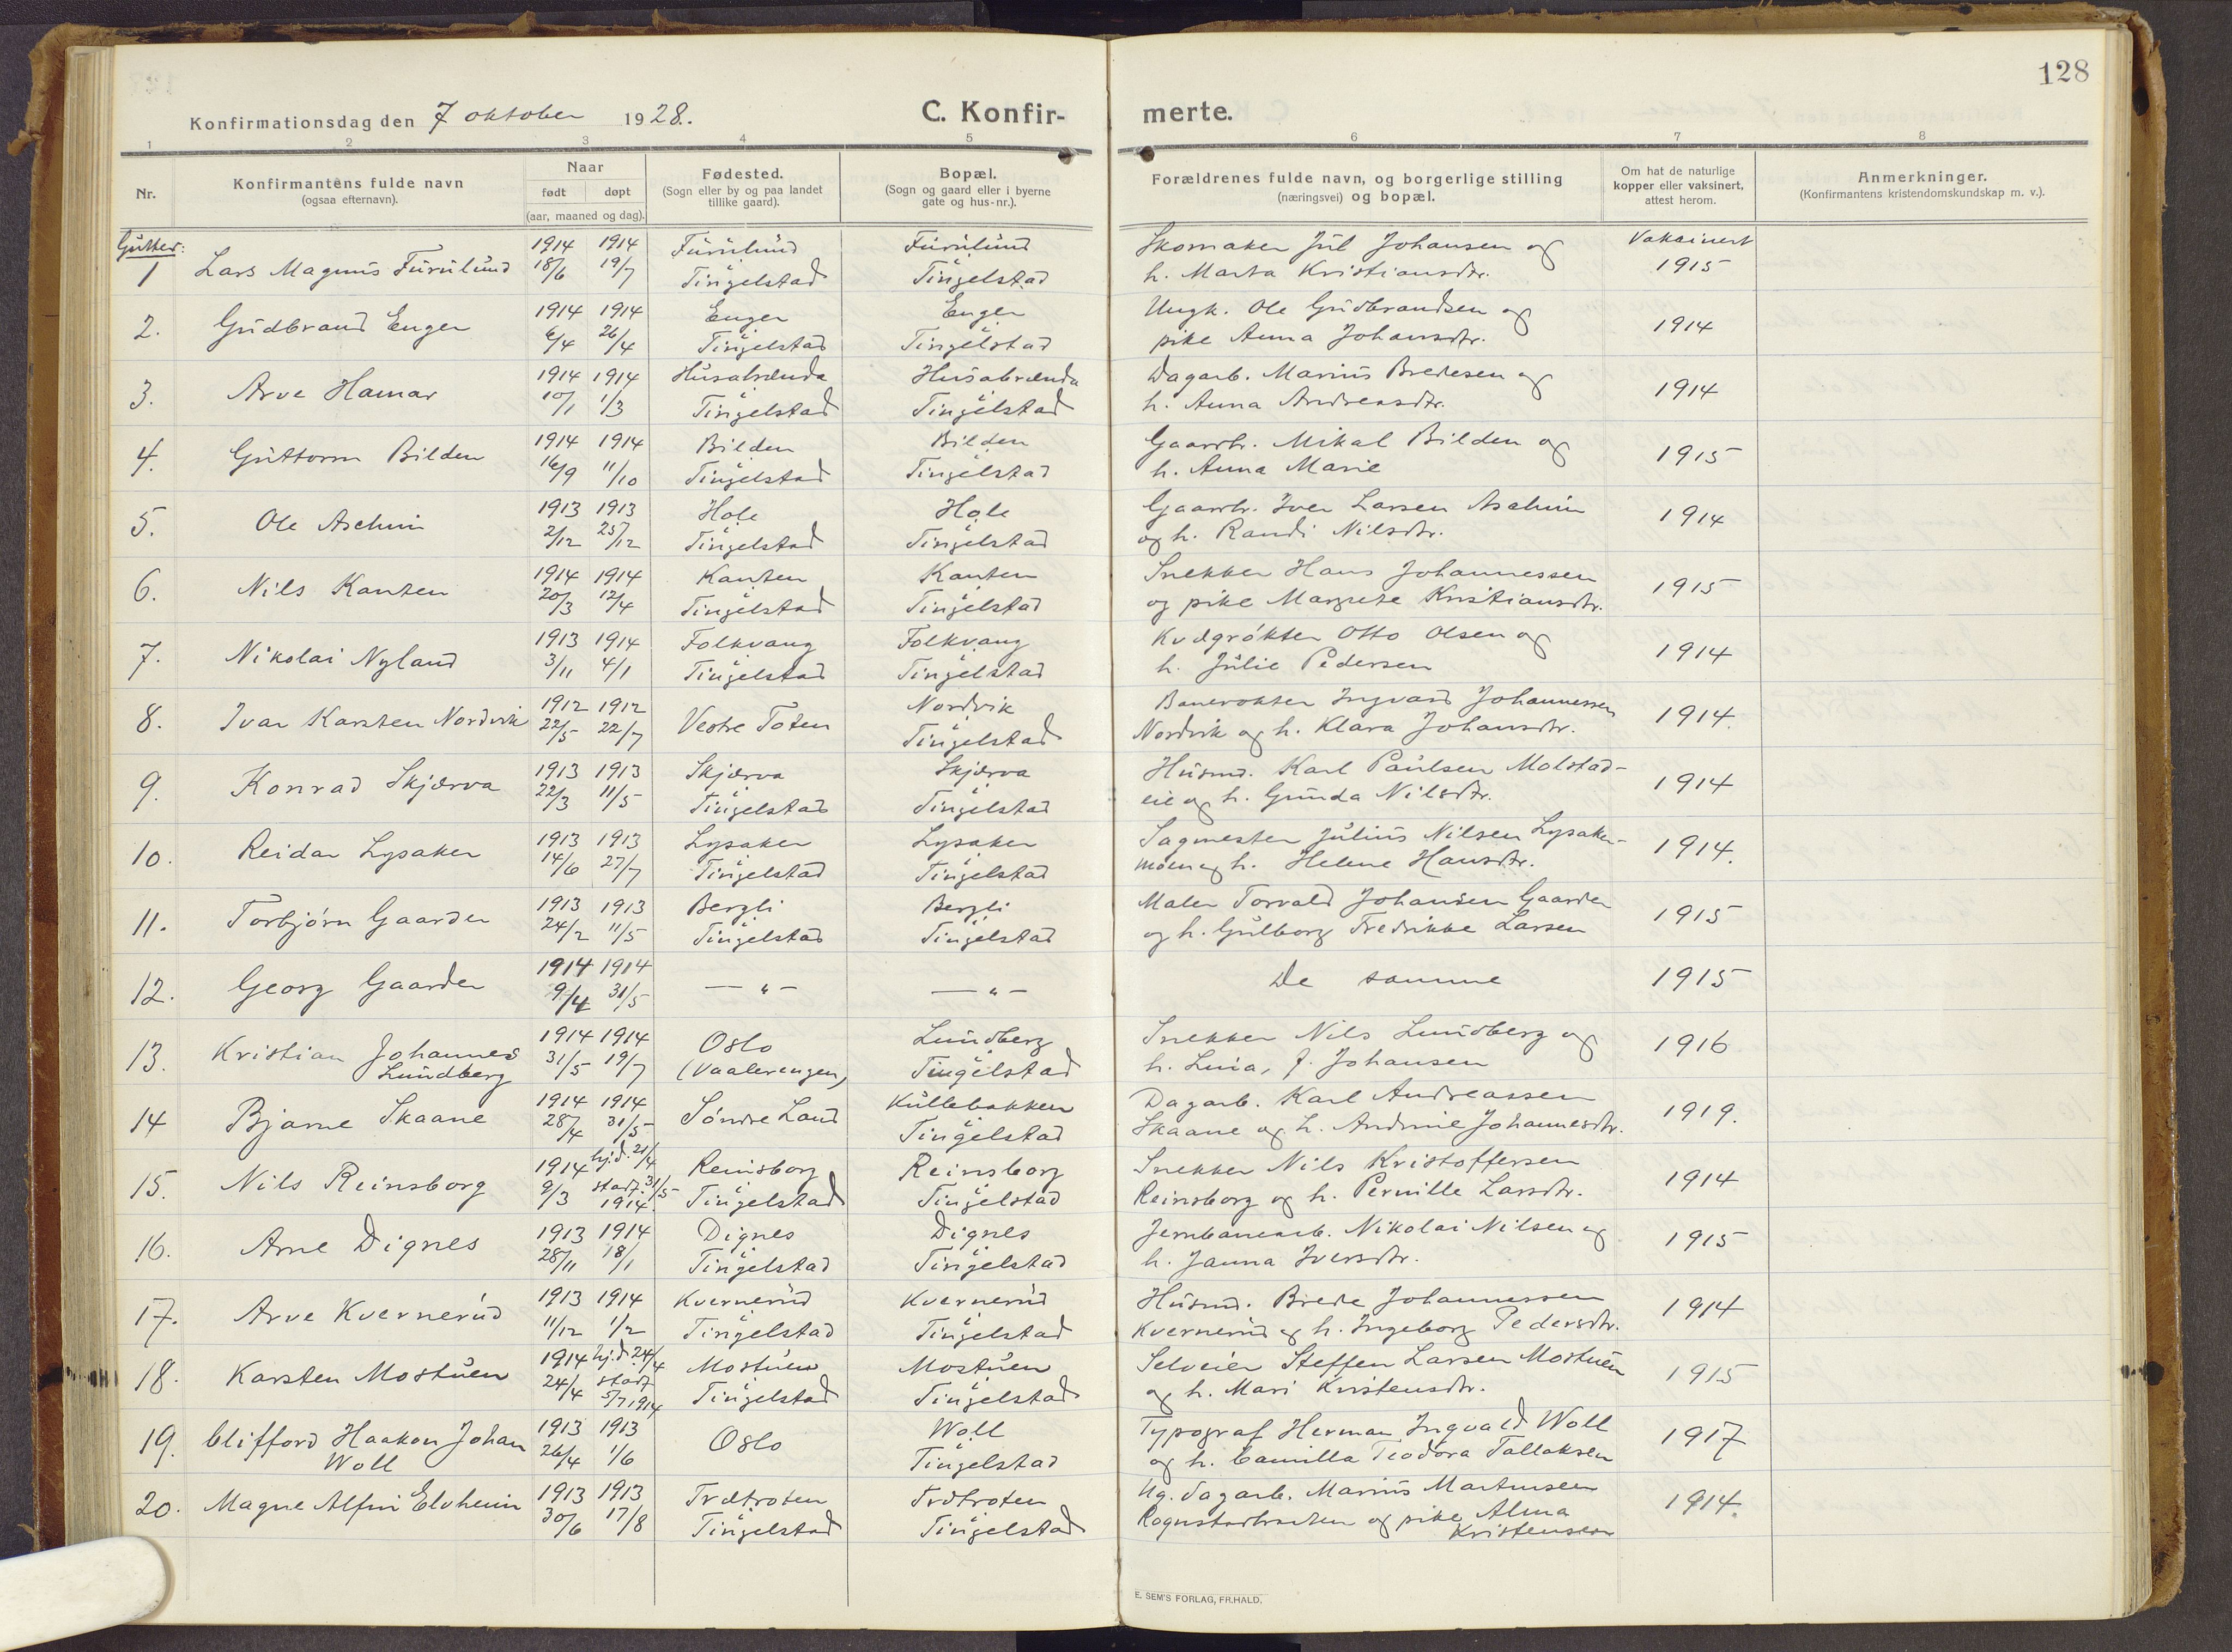 128
Konfirmationsdag den 7 oktober 1928.
C. Konfir-
merte.
1 2 3 4 5 6 7 8
Nr.
Konfirmantens fulde navn
(ogsaa efternavn).
Naar
født døpt
(aar, maaned og dag).
Fødested.
(Sogn eller by og paa landet
tillike gaard).
Bopæl.
(Sogn og gaard eller i byerne
gate og hus-nr.).
Forældrenes fulde navn, og borgerlige stilling
(næringsvei) og bopæl.
Om hat de naturlige
kopper eller vaksinert,
attest herom.
Anmerkninger.
(Konfirmantens kristendomskundskap m. v.).
Gutter:
1914 1914 Furulund Furulund Skomaker Jul Johansen og Vaksinert
1 Lars Magnus Furulund 18/6 19/7 Tingelstad Tingelstad h. Marta Kristiansdtr. 1915
1914 1914 Enger Enger Ungk. Ole Gudbrandsen og
2. Gudbrand Enger 6/4 26/4 Tingelstad Tingelstad pike Anna Johansdtr. 1914
1914 1914 Husabrænda Husabrænda Dagarb. Marius Bredesen og
3. Arve Hamar 10/1 1/3 Tingelstad Tingelstad h. Anna Andreasdtr. 1914
1914 1914 Bilden Bilden Gaardbr. Mikal Bilden og
4. Guttorm Bilden 16/9 11/10 Tingelstad Tingelstad h. Anna Marie 1915
1913 1913 Hole Hole Gaardbr. Iver Larsen Aschim
5. Ole Aschim 2/12 25/12 Tingelstad Tingelstad og h. Randi Nilsdtr. 1914
1914 1914 Kanten Kanten Snekker Hans Johannessen
6. Nils Kanten 20/3 12/4 Tingelstad Tingelstad og pike Margrete Kristiansdtr. 1915
1913 1914 Folkvang Folkvang Kvægrøkter Otto Olsen og
7. Nikolai Nyland 3/11 4/1 Tingelstad Tingelstad h. Julie Pedersen 1914
1912 1912 Nordvik Banevokter Ingvard Johannessen
8. Ivar Karsten Nordvik 22/5 22/7 Vestre Toten Tingelstad Nordvik og h. Klara Johansdtr. 1914.
1913 1913 Skjærva Skjærva Husmd. Karl Paulsen Molstad-
9. Konrad Skjærva 22/3 11/5 Tingelstad Tingelstad eie og h. Gunda Nilsdtr. 1914
1913 1913 Lysaker Lysaker Sagmester Julius Nilsen Lysaker-
10. Reidar Lysaker 14/6 27/7 Tingelstad Tingelstad moen og h. Helene Hansdtr. 1914.
1913 1913 Bergli Bergli Maler Torvald Johansen Gaarder
11. Torbjørn Gaarder 24/2 11/5 Tingelstad Tingelstad og h. Gulborg Fredrikke Larsen 1915
1914 1914
12. Georg Gaarder 9/4 31/5 — " — — " — De samme 1915
1914 1914 Oslo Lundberg Snekker Nils Lundberg og
13. Kristian Johannes 31/5 19/7 (Vaalerengen) Tingelstad h. Luia, f. Johansen 1916
Lundberg
1914 1914 Kullebakken Dagarb. Karl Andreassen
14 Bjarne Skaane 28/4 31/5 Søndre Land Tingelstad Skaane og h. Andrine Johannesdtr. 1919.
1914 hj.d. 21/4 Reinsborg Reinsborg Snekker Nils Kristoffersen
15. Nils Reinsborg 9/3 stadf. 31/5 1914. Tingelstad Tingelstad Reinsborg og h. Pernille Larsdtr. 1914
1913 1914 Dignes Dignes Jernbanearb. Nikolai Nilsen og
16. Arne Dignes 28/11 18/1 Tingelstad Tingelstad h. Janna Iversdtr. 1915
1913 1914 Kvernerud Kvernerud Husmd. Brede Johannessen
17. Arve Kvernerud 11/12 1/2 Tingelstad Tingelstad Kvernerud og h. Ingeborg Pedersdtr. 1914
1914 hj.d. 24/4 Mostuen Mostuen Selveier Steffen Larsen Mostuen
18. Karsten Mostuen 24/4 stadf 5/7 1914 Tingelstad Tingelstad og h. Mari Kristensdtr. 1915
1913 1913 Woll Typograf Herman Ingvald Woll
19. Clifford Haakon Johan 26/4 1/6 Oslo Tingelstad og h. Camilla Teodora Tallaksen 1917
Woll
1913 1913 Trætroten Trætroten Ug. dagarb. Marius Martinsen
20. Magne Alfin Elvheim 30/6 17/8 Tingelstad Tingelstad og pike Alma 1914.
Kristensen
E. SEM'S FORLAG, FR.HALD.